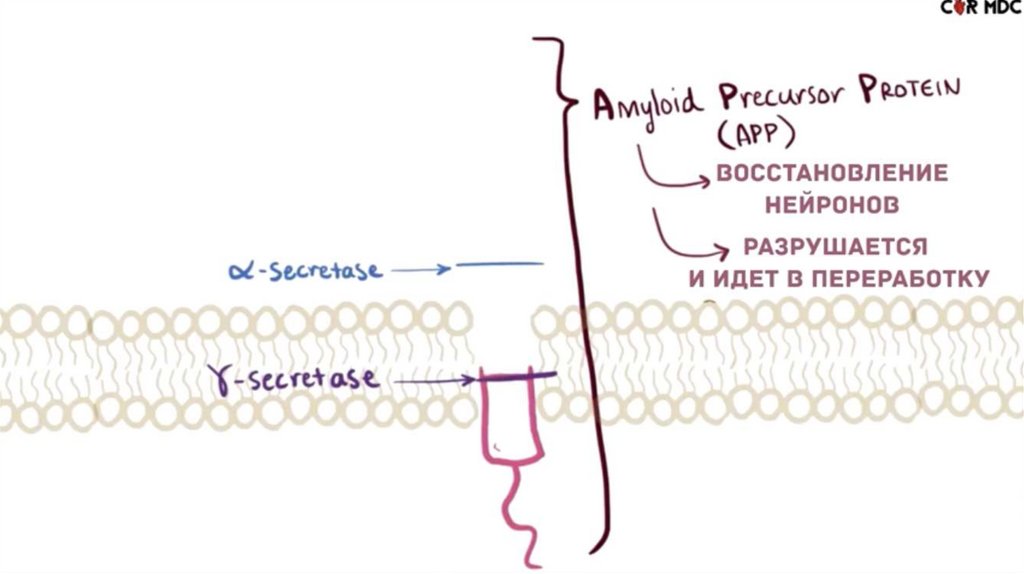 COR MDC
Amyloid Precursor PROTEIN
(APP)
ВОССТАНОВЛЕНИЕ
НЕЙРОНОВ
РАЗРУШАЕТСЯ
И ИДЕТ В ПЕРЕРАБОТКУ
α-secretase
γ-secretase